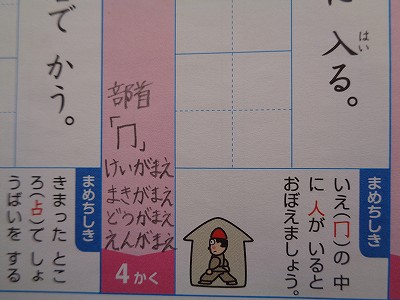 に 入る。
はい
まめちしき
いえ(冂)の 中
に 人が いると
おぼえましょう。
部首
「冂」
けいがまえ
まきがまえ
どうがまえ
えんがまえ
4かく
でかう。
まめちしき
きまった とこ
ろ(占)で しょ
うばいを する